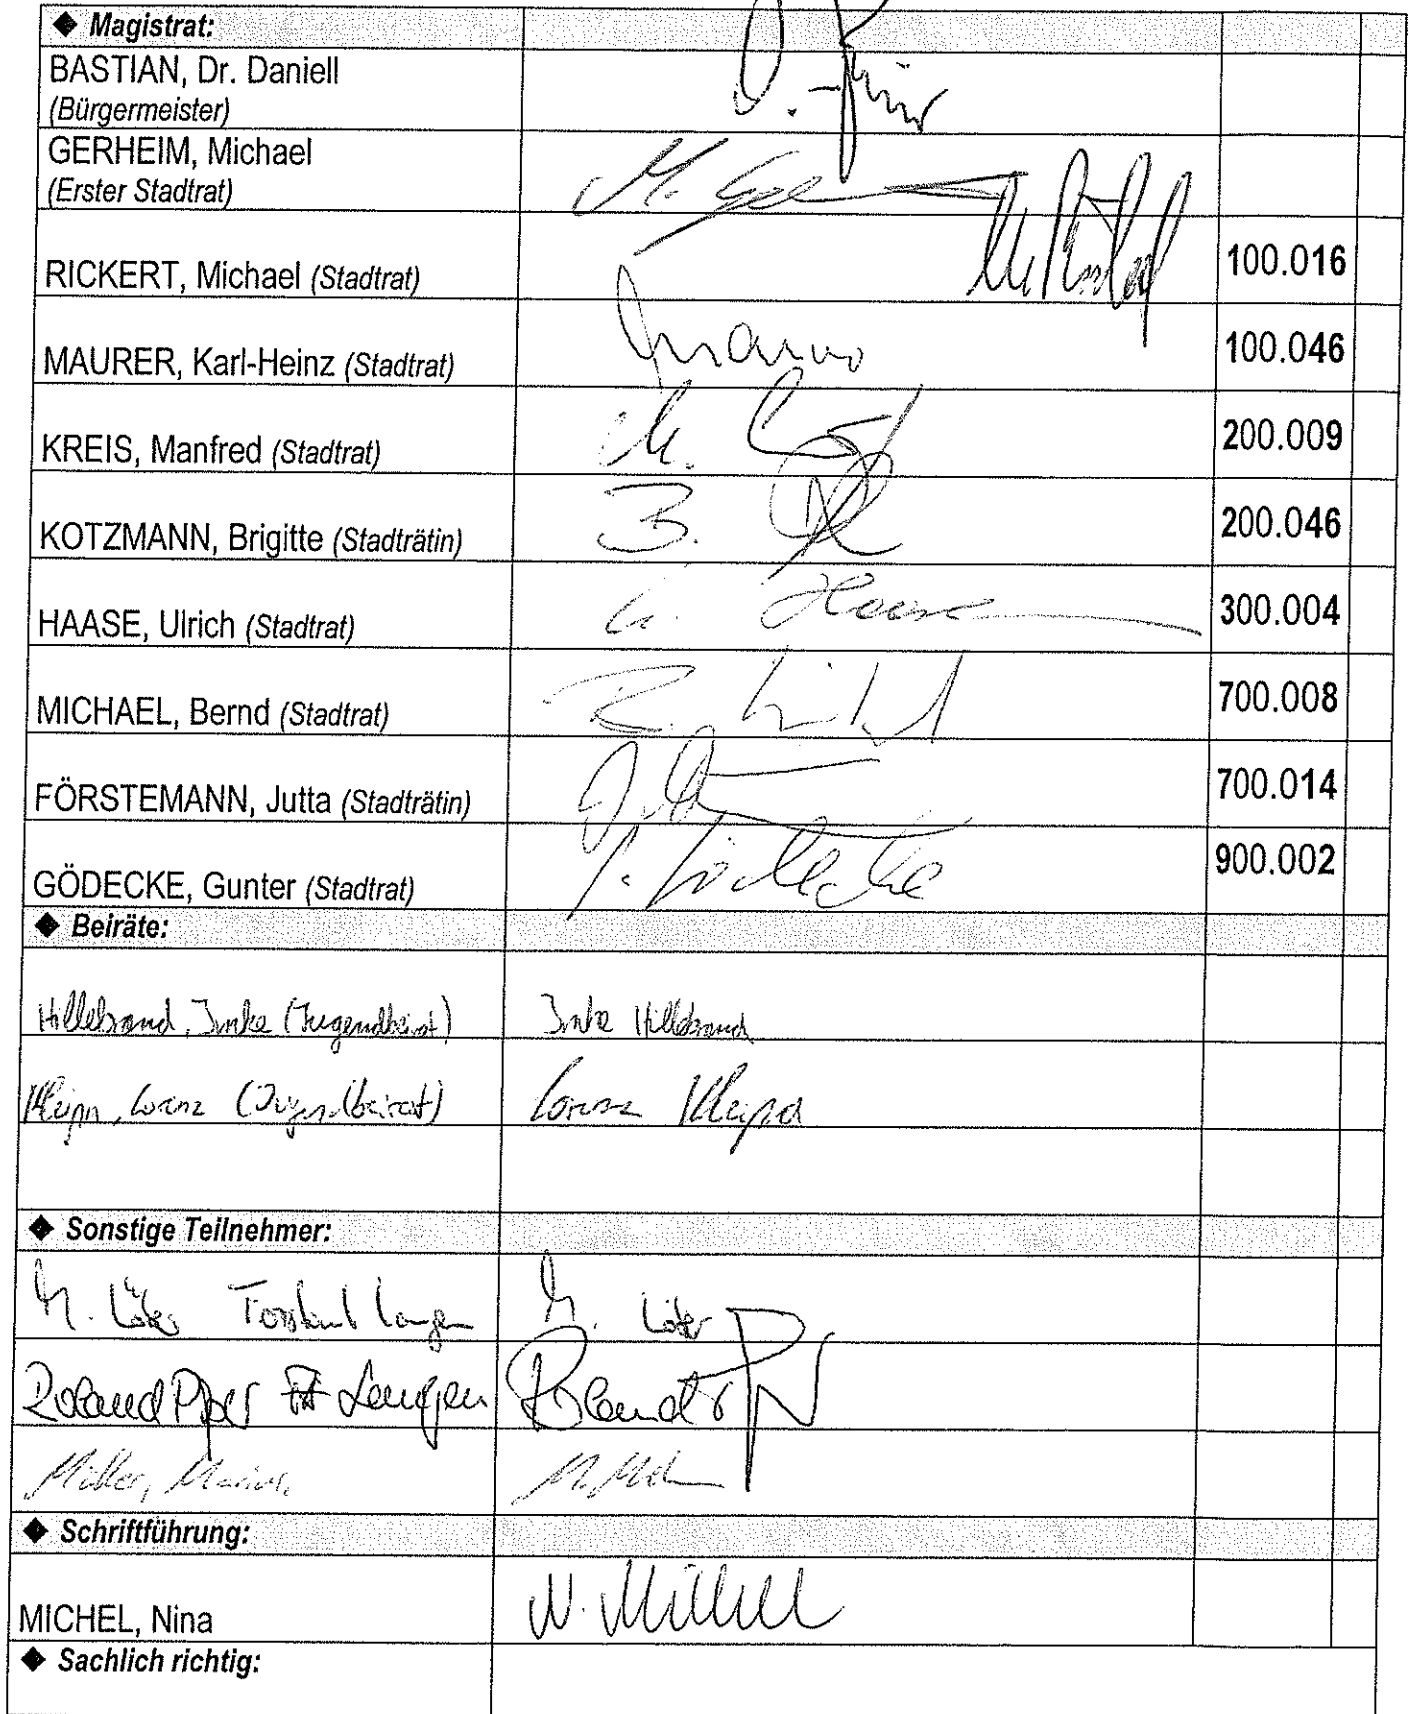 ◆ Magistrat:
BASTIAN, Dr. Daniell
(Bürgermeister)
GERHEIM, Michael
(Erster Stadtrat)
RICKERT, Michael (Stadtrat) 100.016
MAURER, Karl-Heinz (Stadtrat) 100.046
KREIS, Manfred (Stadtrat) M. 200.009
KOTZMANN, Brigitte (Stadträtin) B. 200.046
HAASE, Ulrich (Stadtrat) U. Haase 300.004
MICHAEL, Bernd (Stadtrat) 700.008
FÖRSTEMANN, Jutta (Stadträtin) 700.014
GÖDECKE, Gunter (Stadtrat) Gödecke 900.002
◆ Beiräte:
Hillebrand, Imke (Jugendbeirat) Imke Hillebrand
(Jugendbeirat)
◆ Sonstige Teilnehmer:
M. M.
Roland Langen Roland
Müller, M.
◆ Schriftführung:
MICHEL, Nina N. Michel
◆ Sachlich richtig: